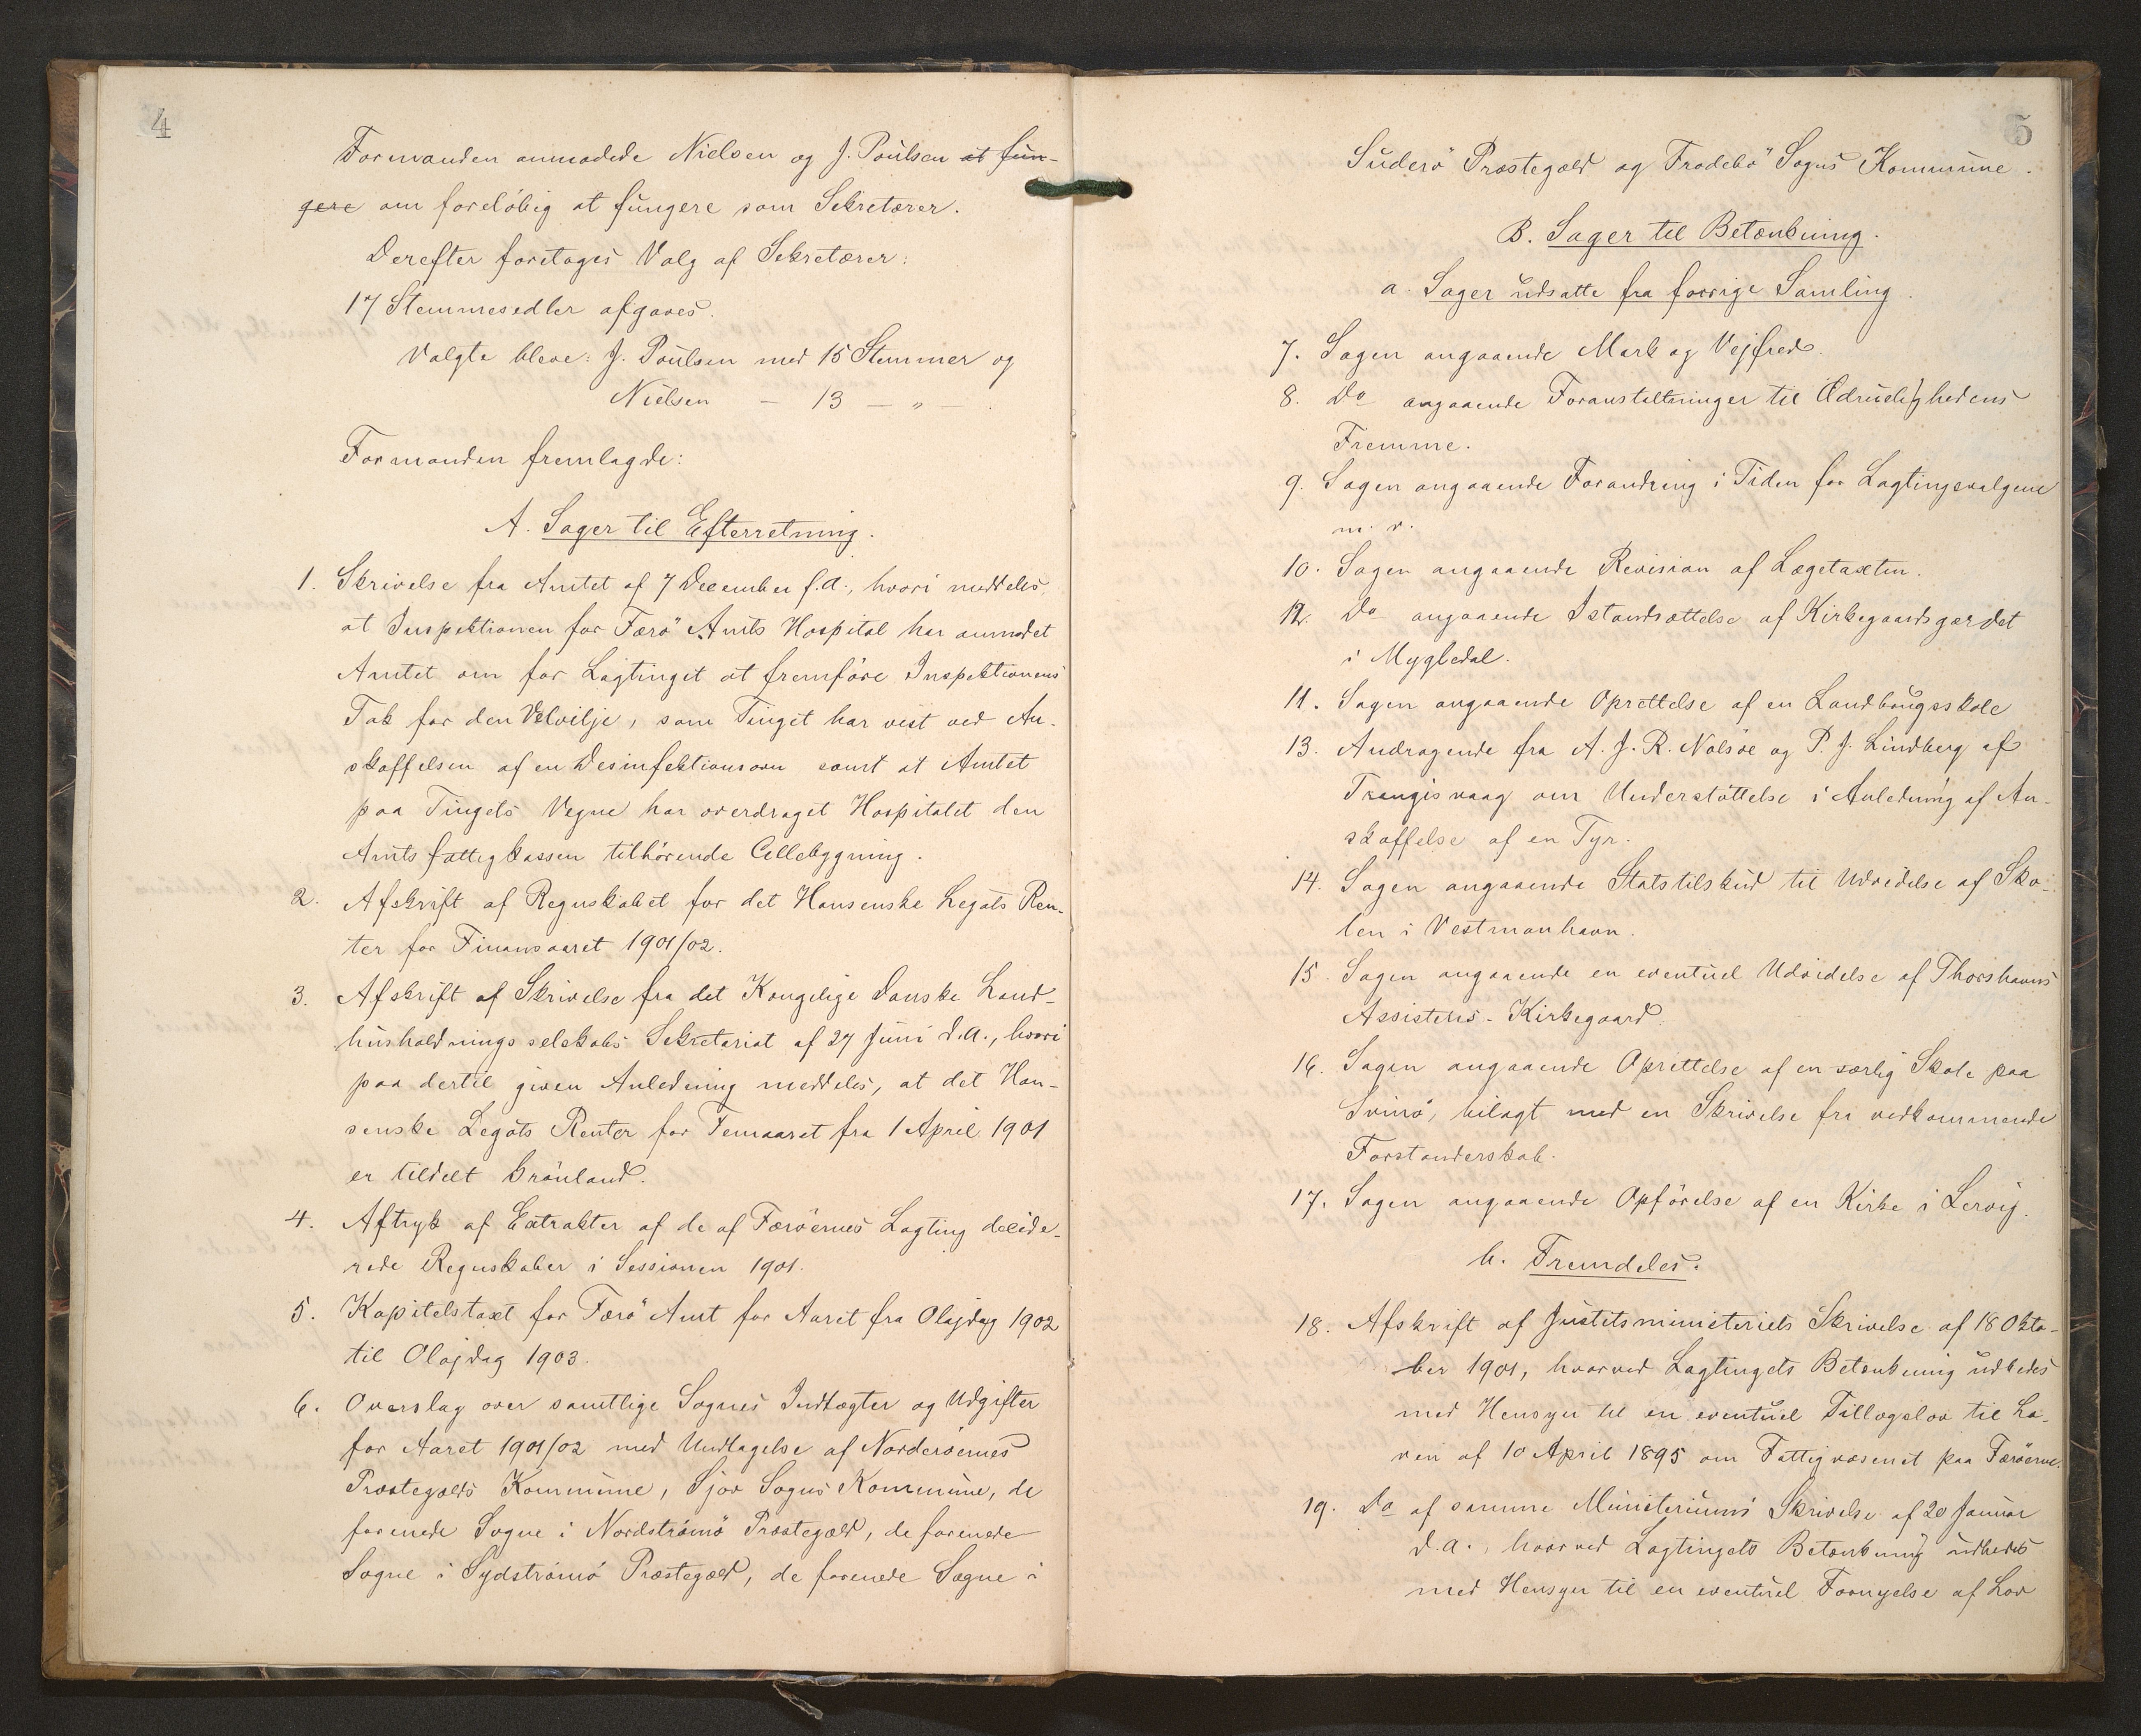 4
Formanden anmodede Nielsen og J. Poulsen at fun-
gere om foreløbig at fungere som Sekretærer.
Derefter foretages Valg af Sekretærer:
17 Stemmesedler afgaves.
Valgte bleve: J. Poulsen med 15 Stemmer og
Nielsen — 13 — „ —.
Formanden fremlagde:
A. Sager til Efterretning.
1. Skrivelse fra Amtet af 7 December f.A., hvori meddeles,
at Inspektionen for Færø Amts Hospital har anmodet
Amtet om for Lagtinget at fremføre Inspektionens
Tak for den Velvilje, som Tinget har vist ved An-
skaffelsen af en Desinfektionsovn samt at Amtet
paa Tingets Vegne har overdraget Hospitalet den
Amtsfattigkassen tilhørende Cellebygning.
2. Afskrift af Regnskabet for det Hansenske Legats Ren-
ter for Finansaaret 1901/02.
3. Afskrift af Skrivelse fra det Kongelige Danske Land-
husholdningsselskabs Sekretariat af 27 Juni d.A., hvori
paa dertil given Anledning meddeles, at det Han-
senske Legats Renter for Femaaret fra 1 April 1901
er tildelt Grønland.
4. Aftryk af Extrakter af de af Færøernes Lagting decide-
rede Regnskaber i Sessionen 1901.
5. Kapitelstaxt for Færø Amt for Aaret fra Olajdag 1902
til Olajdag 1903.
6. Overslag over samtlige Sognes Indtægter og Udgifter
for Aaret 1901/02 med Undtagelse af Norderøernes
Præstegælds Kommune, Sjov Sogns Kommune, de
forenede Sogne i Nordstrømø Præstegæld, de forenede
Sogne i Sydstrømø Præstegæld, de forenede Sogne i
5
Suderø Præstegæld og Frodebø Sogns Kommune.
B. Sager til Betænkning.
a. Sager udsatte fra forrige Samling.
7. Sagen angaaende Mark og Vejfred.
8. Do angaaende Foranstaltninger til Ædruelighedens
Fremme.
9. Sagen angaaende Forandring i Tiden for Lagtingsvalgene
m. v.
10. Sagen angaaende Revision af Lægetaxten.
12. Do angaaende Istandsættelse af Kirkegaardsgærdet
i Mygledal.
11. Sagen angaaende Oprettelse af en Landbrugsskole
13. Andragende fra A. J. R. Nolsøe og P. J. Lindberg af
Trangisvaag om Understøttelse i Anledning af An-
skaffelse af en Tyr.
14. Sagen angaaende Statstilskud til Udvidelse af Sko-
len i Vestmanhavn.
15. Sagen angaaende en eventuel Udvidelse af Thorshavns
Assistens-Kirkegaard.
16. Sagen angaaende Oprettelse af en særlig Skole paa
Svinø, bilagt med en Skrivelse fra vedkommende
Forstanderskab.
17. Sagen angaaende Opførelse af en Kirke i Lervig.
b. Fremdeles.
18. Afskrift af Justitsministeriets Skrivelse af 18 Okto-
ber 1901, hvorved Lagtingets Betænkning udbedes
med Hensyn til en eventuel Tillægslov til Lo-
ven af 10 April 1895 om Fattigvæsenet paa Færøerne.
19. Do af samme Ministeriums Skrivelse af 20 Januar
d.A., hvorved Lagtingets Betænkning udbedes
med Hensyn til en eventuel Fornyelse af Lov